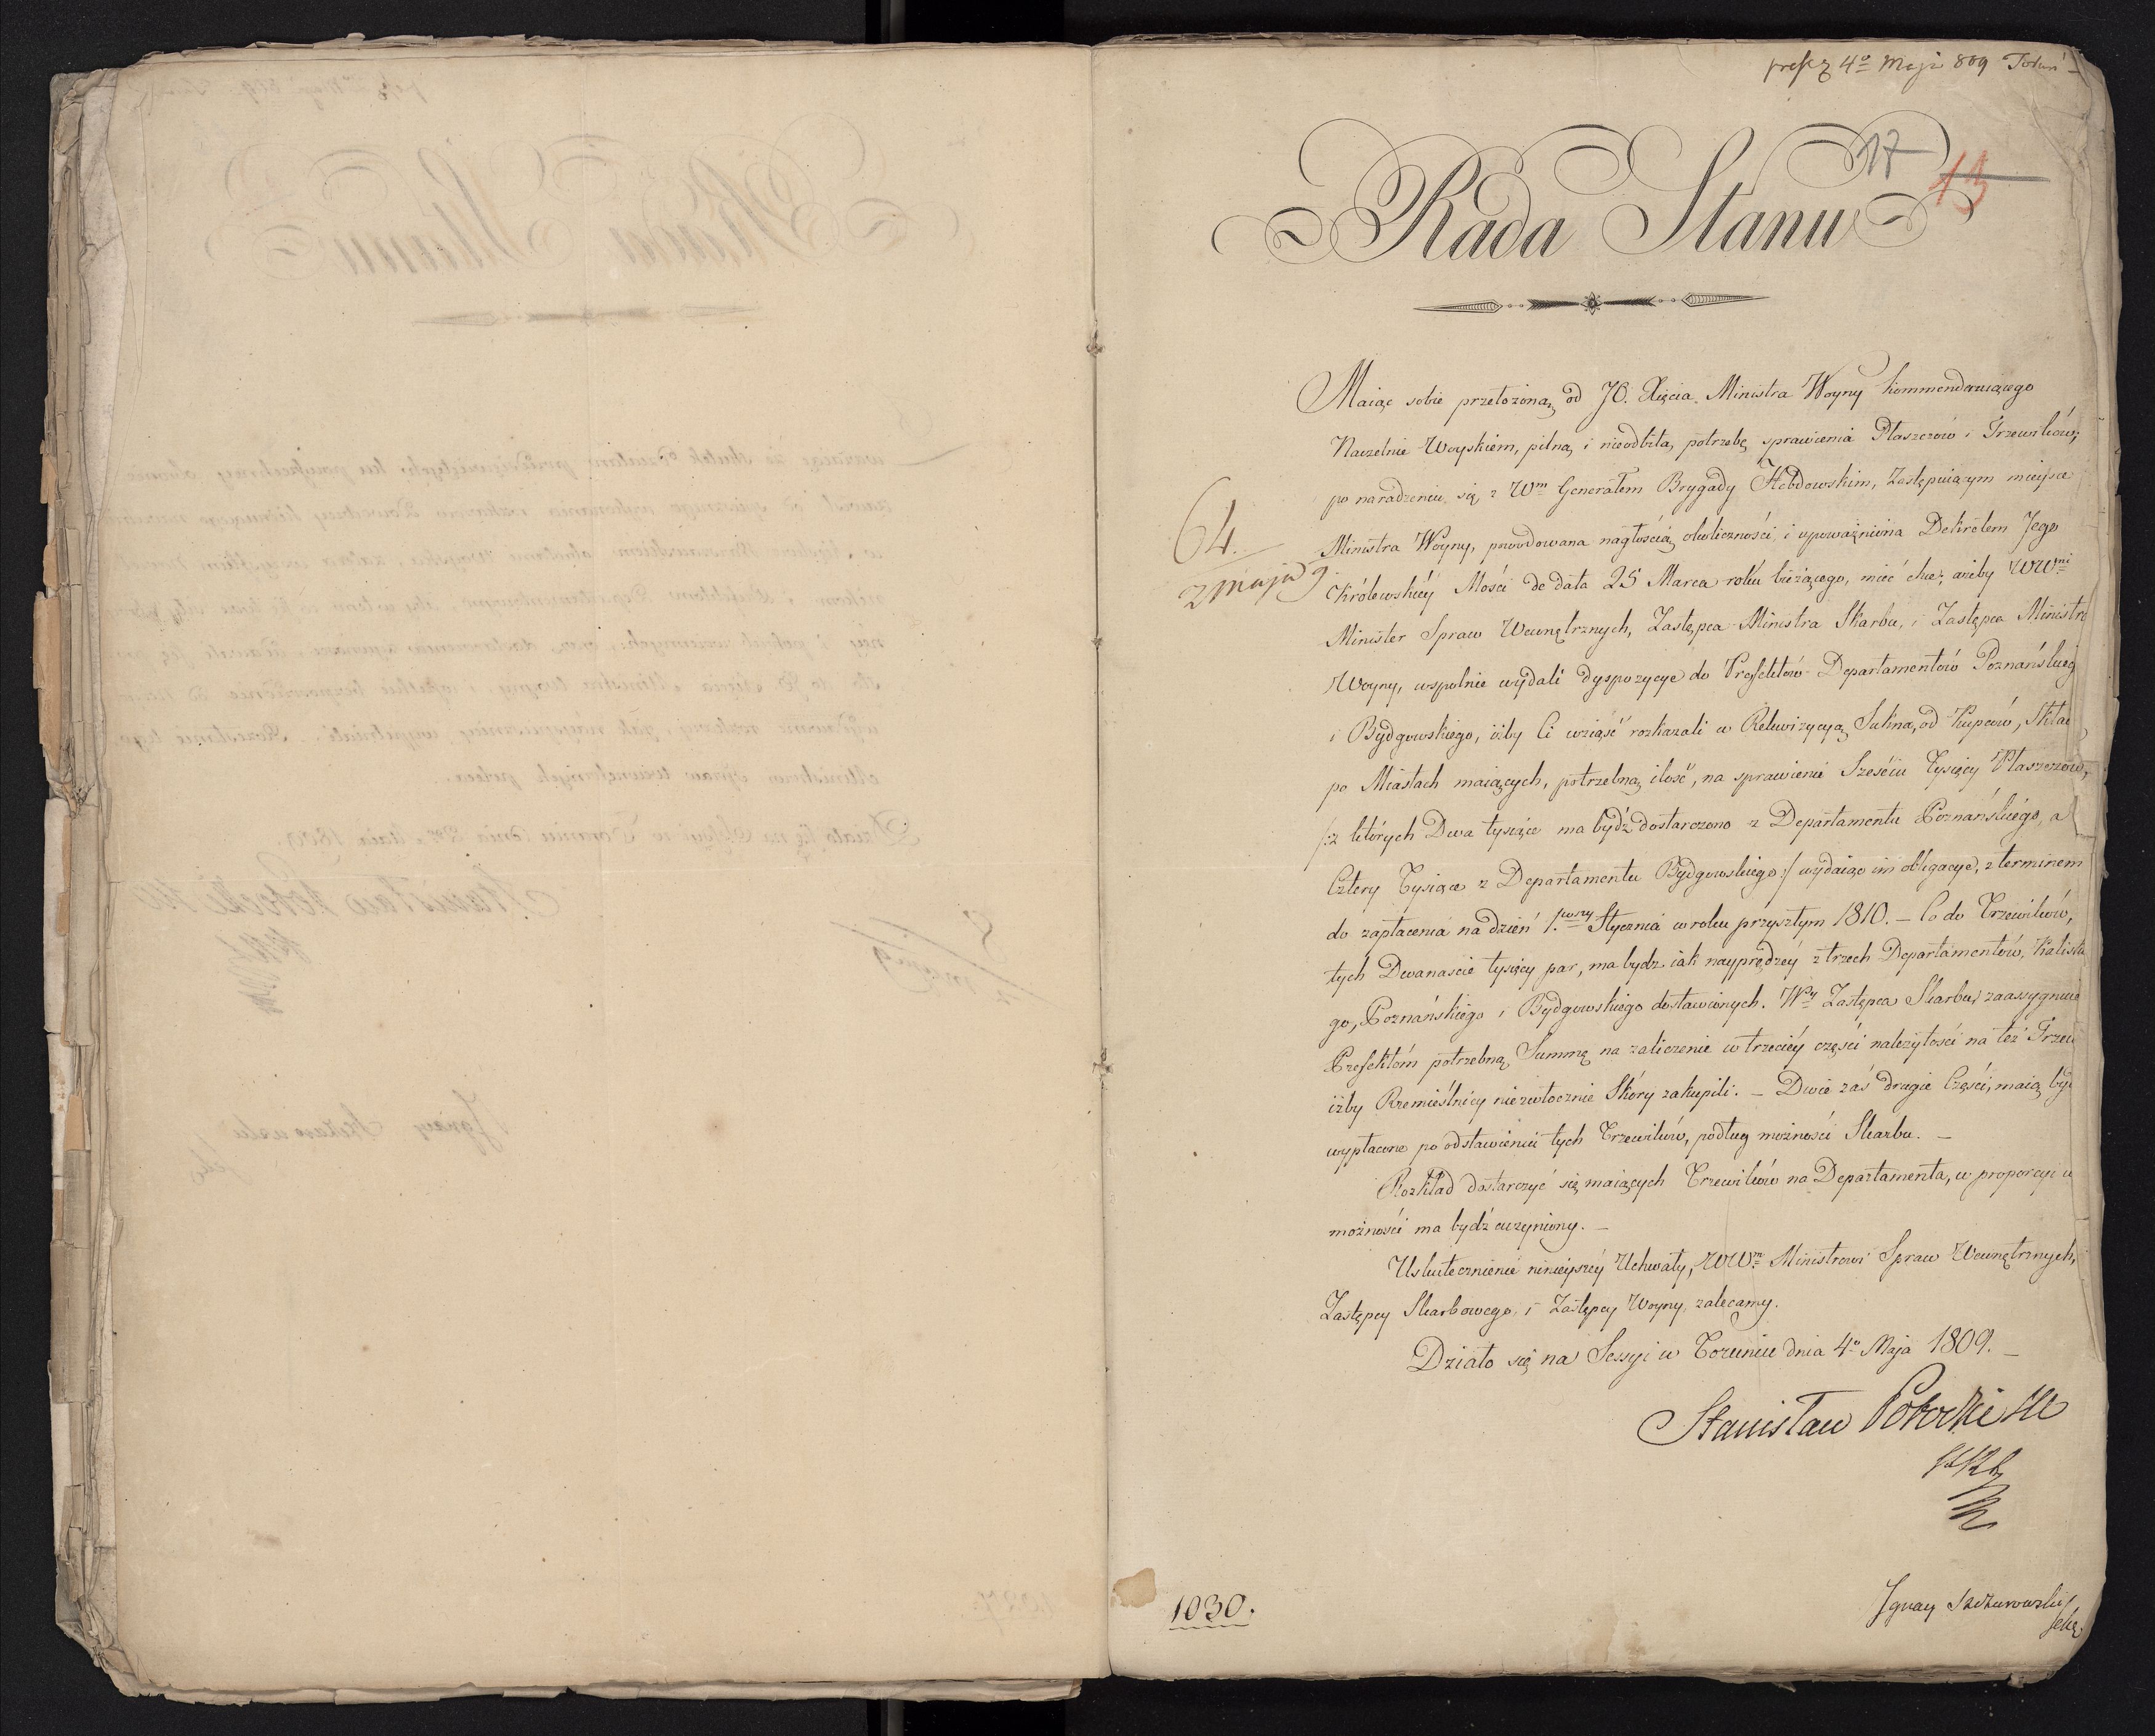 4o Maja 809 Toruń
17
13
Rada Stanu
Maiąc sobie przełożoną od JO. Xięcia Ministra Woyny kommenderuiącego
Naczelnie Woyskiem, pilną i nieodbitą potrzebę sprawienia Płaszczów i Trzewików,
po naradzeniu się z Wm Generałem Brygady Hebdowskim, Zastępuiącym mieysce
64.
Ministra Woyny, powodowana nagłością okoliczności i upoważniona Dekretem Jego
2 maja 9
Królewskiéy Mości de data 25 Marca roku bieżącego, mieć chce, ażeby WWni
Minister Spraw Wewnętrznych, Zastępca Ministra Skarbu, i Zastępca Ministra
Woyny, wspolnie wydali dyspozycye do Prefektów Departamentów Poznańskieg
i Bydgowskiego, iżby Ci wziąść rozkazali w Rekwizycyą Sukna, od Kupców, Skła
po Miastach maiących, potrzebną ilość, na sprawienie Sześciu Tysięcy Płaszczów,
/:z których Dwa tysiące ma bydź dostarczono z Departamentu Poznańskiégo, a
Cztery Tysiące z Departamentu Bydgowskiego:/ wydaiąc im obligacye, z terminem
do zapłacenia na dzień 1.wszy Stycznia w roku przyszłym 1810. – Co do Trzewików,
tych Dwanaście tysięcy par, ma bydz iak nayprędzéy z trzech Departamentów, Kalisk
go, Poznańskiego i Bydgowskiego dostawionych. Wy Zastępca Skarbu, zaassygnuie
Prefektóm potrzebną Summę na zaliczenie w trzeciéy części należytości na też Trzew
iżby Rzemieślnicy niezwłocznie Skóry zakupili. – Dwie zaś drugie Części, maią by
wypłacone po odstawieniu tych Trzewików, podług możności Skarbu. –
Rozkład dostarczyć się maiących Trzewików na Departamenta, w proporcyi i
możności ma bydź uczyniony. –
Uskutecznienie ninieyszéy Uchwały, WWm Ministrowi Spraw Wewnętrznych,
Zastępcy Skarbowego, i Zastępcy Woyny, zalecamy.
Działo się na Sessyi w Toruniu dnia 4o Maja 1809. –
Stanisław Potocki
1030.
Ignacy